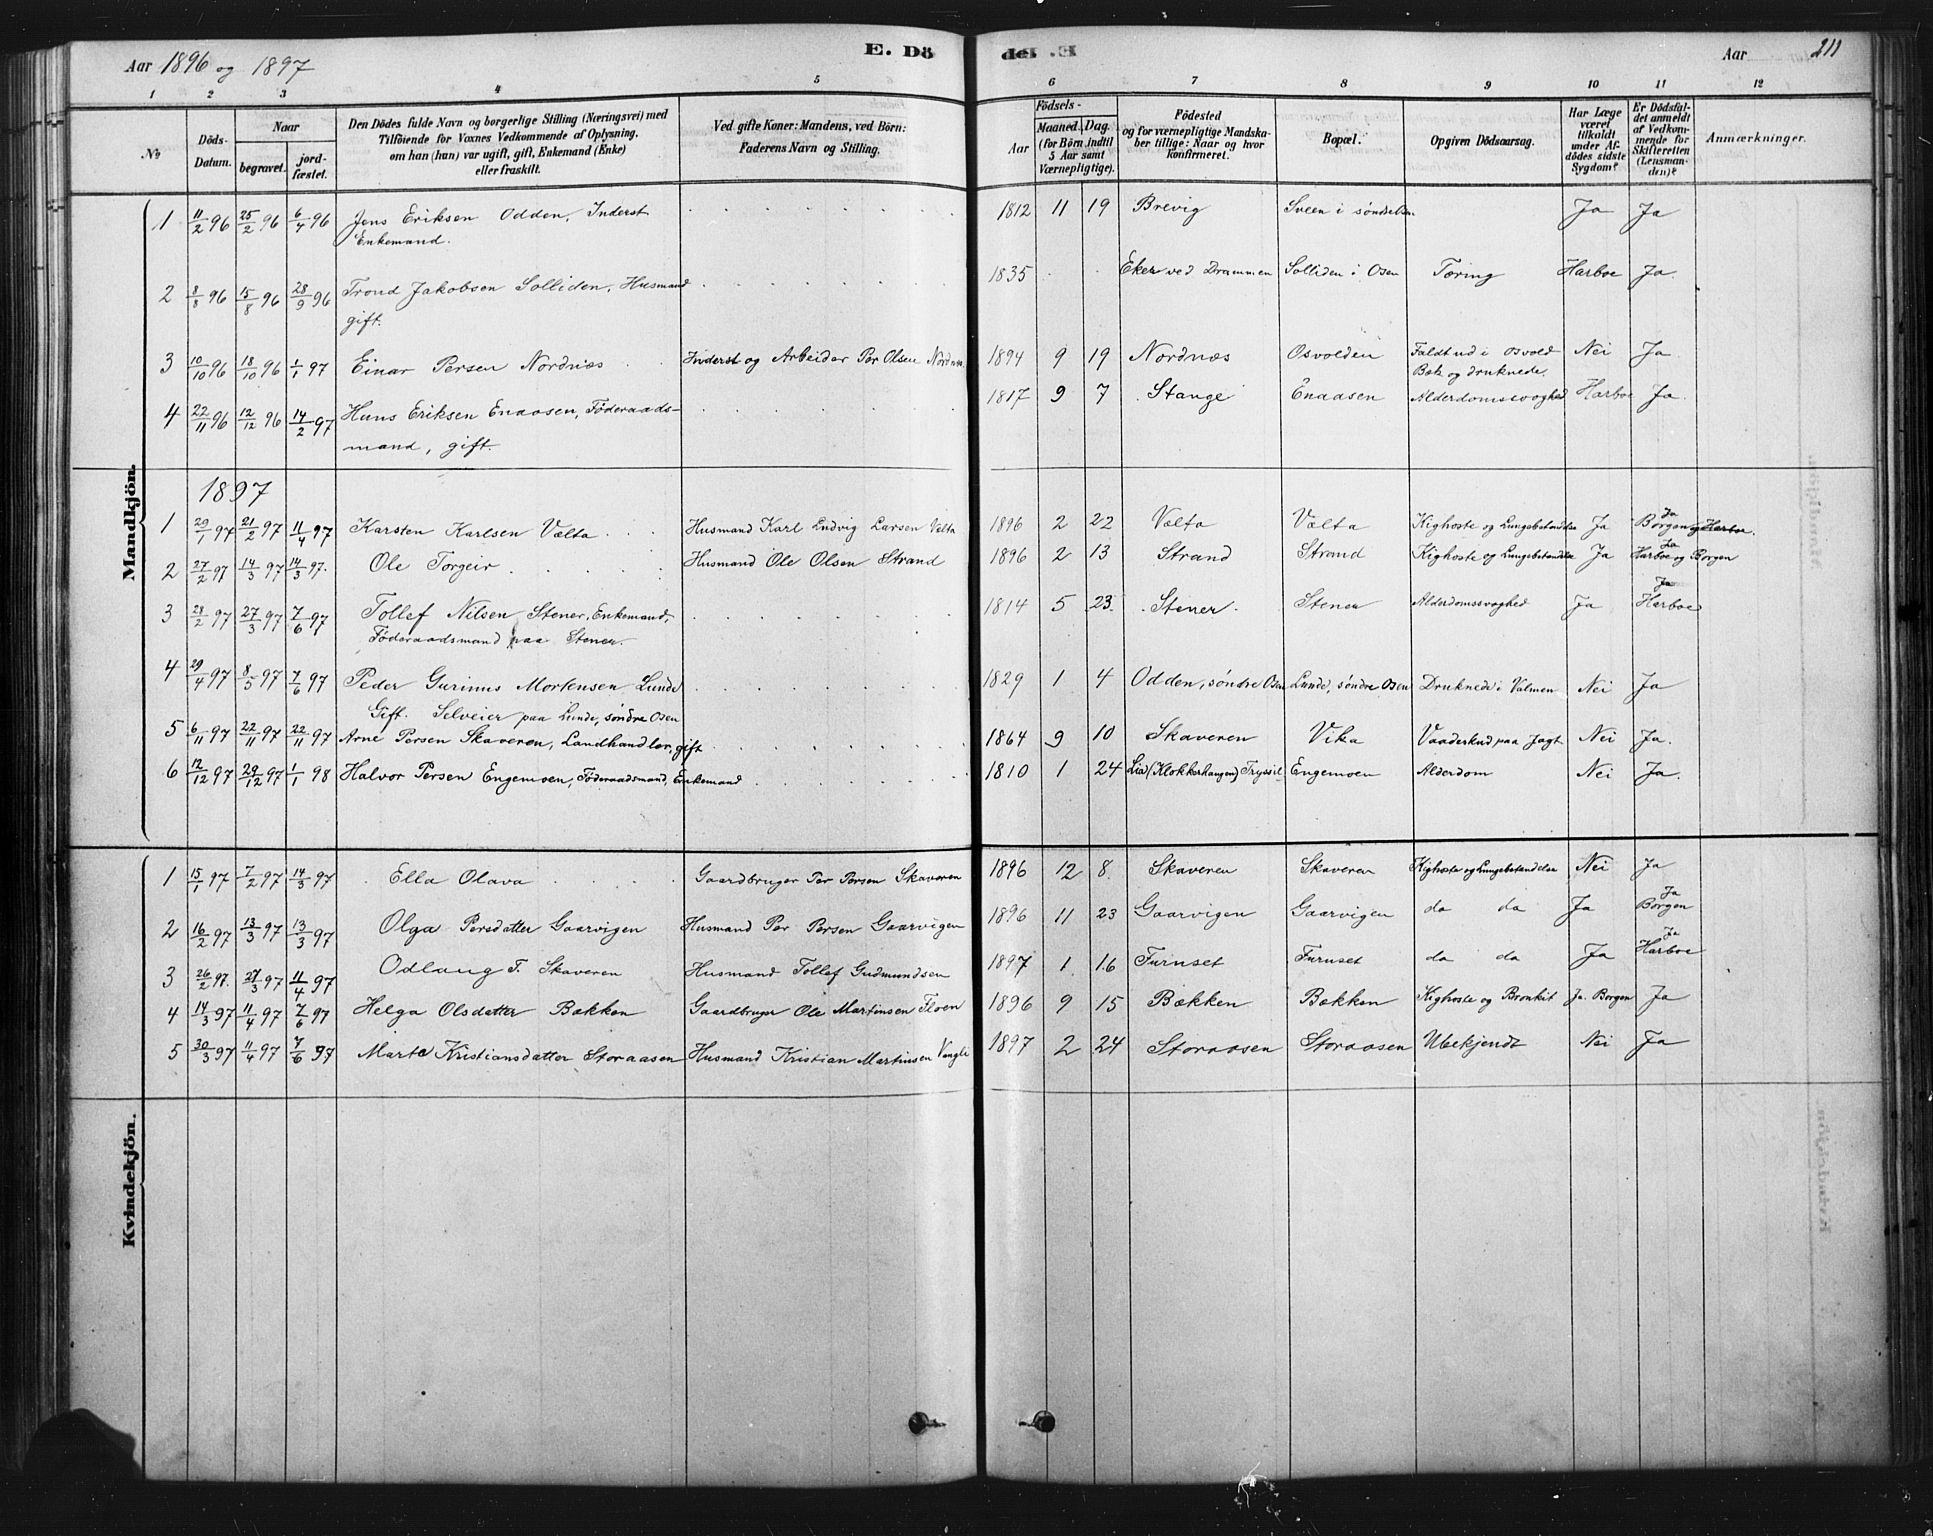 Aar 1896 og 1897
E. Dö
de. E
Aar 211
1 2 3 4 5 6 7 8 9 10 11 12
No
Döds-Datum.
Naar
begravet.
jordfæstet.
Den Dödes fulde Navn og borgerlige Stilling (Næringsvei) med
Tilföiende for Voxnes Vedkommende af Oplysning,
om han (hun) var ugift, gift, Enkemand (Enke)
eller fraskilt.
Ved gifte Koner: Mandens, ved Börn:
Faderens Navn og Stilling.
Födsels-
Aar
Maaned. Dag.
(for Börn indtil
5 Aar samt
Værnepligtige).
Födested
og for værnepligtige Mandska-
ber tillige: Naar og hvor
konfirmeret.
Bopæl.
Opgiven Dödsaarsag.
Har Læge
været
tilkaldt
under Af-
dödes sidste
Sygdom?
Er Dödsfal-
det anmeldt
af Vedkom-
mende for
Skifteretten
(Lensman-
den)?
Anmærkninger.
Mandkjön.
1 11/2 96 25/2 96 6/4 96 Jens Eriksen Odden, Inderst 1812 11 19 Brevig Sveen i søndre Osen Ja Ja
Enkemand.
2 8/8 96 15/8 96 28/9 96 Trond Jakobsen Solliden, Husmand 1835 Eker ved Drammen Solliden i Osen Tæring Harboe Ja.
gift.
3 10/10 96 18/10 96 1/1 97 Einar Persen Nordnæs Inderst og Arbeider Per Olsen Nordnæs 1894 9 19 Nordnæs Osvolden Faldt ud i Osvold Nei Ja
Bæk og druknede.
4 22/11 96 12/12 96 14/2 97 Hans Eriksen Enaasen, Föderaads- 1817 9 7 Stange Enaasen Alderdomssvaghed Harboe Ja.
mand, gift.
1897
1 29/1 97 21/2 97 11/4 97 Karsten Karlsen Vælta Husmand Karl Endvig Larsen Vælta 1896 2 22 Vælta Vælta Kighoste og Lungebetændelse Ja Ja Borgen og Harboe.
2 27/2 97 14/3 97 14/3 97. Ole Torgeir Husmand Ole Olsen Strand 1896 2 13 Strand Strand Kighoste og Lungebetændelse Ja Ja Harboe og Borgen
3 28/2 97 27/3 97 7/6 97 Tollef Nilsen Stener, Enkemand, 1814 5 23. Stener. Stener Alderdomssvaghed Ja Ja Harboe
Föderaadsmand paa Stener.
4 29/4 97 8/5 97 7/6 97 Peder Gurinus Mortensen Lunde 1829 1 4 Odden, søndre Osen Lunde, søndre Osen Druknede i Valmen Nei Ja
Gift. Selveier paa Lunde, søndre Osen
5 6/11 97 22/11 97 22/11 97 Arne Persen Skaveren, Landhandler, gift 1864 9 10 Skaveren Vika Vaadeskud paa Jagt Nei Ja.
6 12/12 97 29/12 97 1/1 98 Halvor Persen Engemoen, Föderaadsmand, Enkemand 1810 1 24 Lia (Klokkerhaugen) Trysil Engemoen Alderdom Nei Ja.
Kvindekjön.
1 15/1 97 7/2 97 14/3 97 Ella Olava Gaardbruger Per Persen Skaveren 1896 12 8. Skaveren Skaveren Kighoste og Lungebetændelse Nei Ja
2 16/2 97 13/3 97 13/3 97 Olga Persdatter Gaarvigen Husmand Per Persen Gaarvigen 1896 11 23 Gaarvigen Gaarvigen do do Ja Ja Borgen
3 26/2 97. 27/3 97 11/4 97 Odlaug T. Skaveren Husmand Tollef Gudmundsen 1897 1. 16 Furuset Furuset do do Ja Ja Harboe
4 14/3 97 11/4 97 7/6 97 Helga Olsdatter Bækken Gaardbruger Ole Martinsen Floen 1896 9 15 Bækken Bækken Kighoste og Bronkit Ja. Borgen Ja
5 30/3 97 11/4 97 7/6 97 Marte Kristiansdatter Storaasen Husmand Kristian Martinsen 1897 2 24 Storaasen Storaasen Ubekjendt Nei Ja